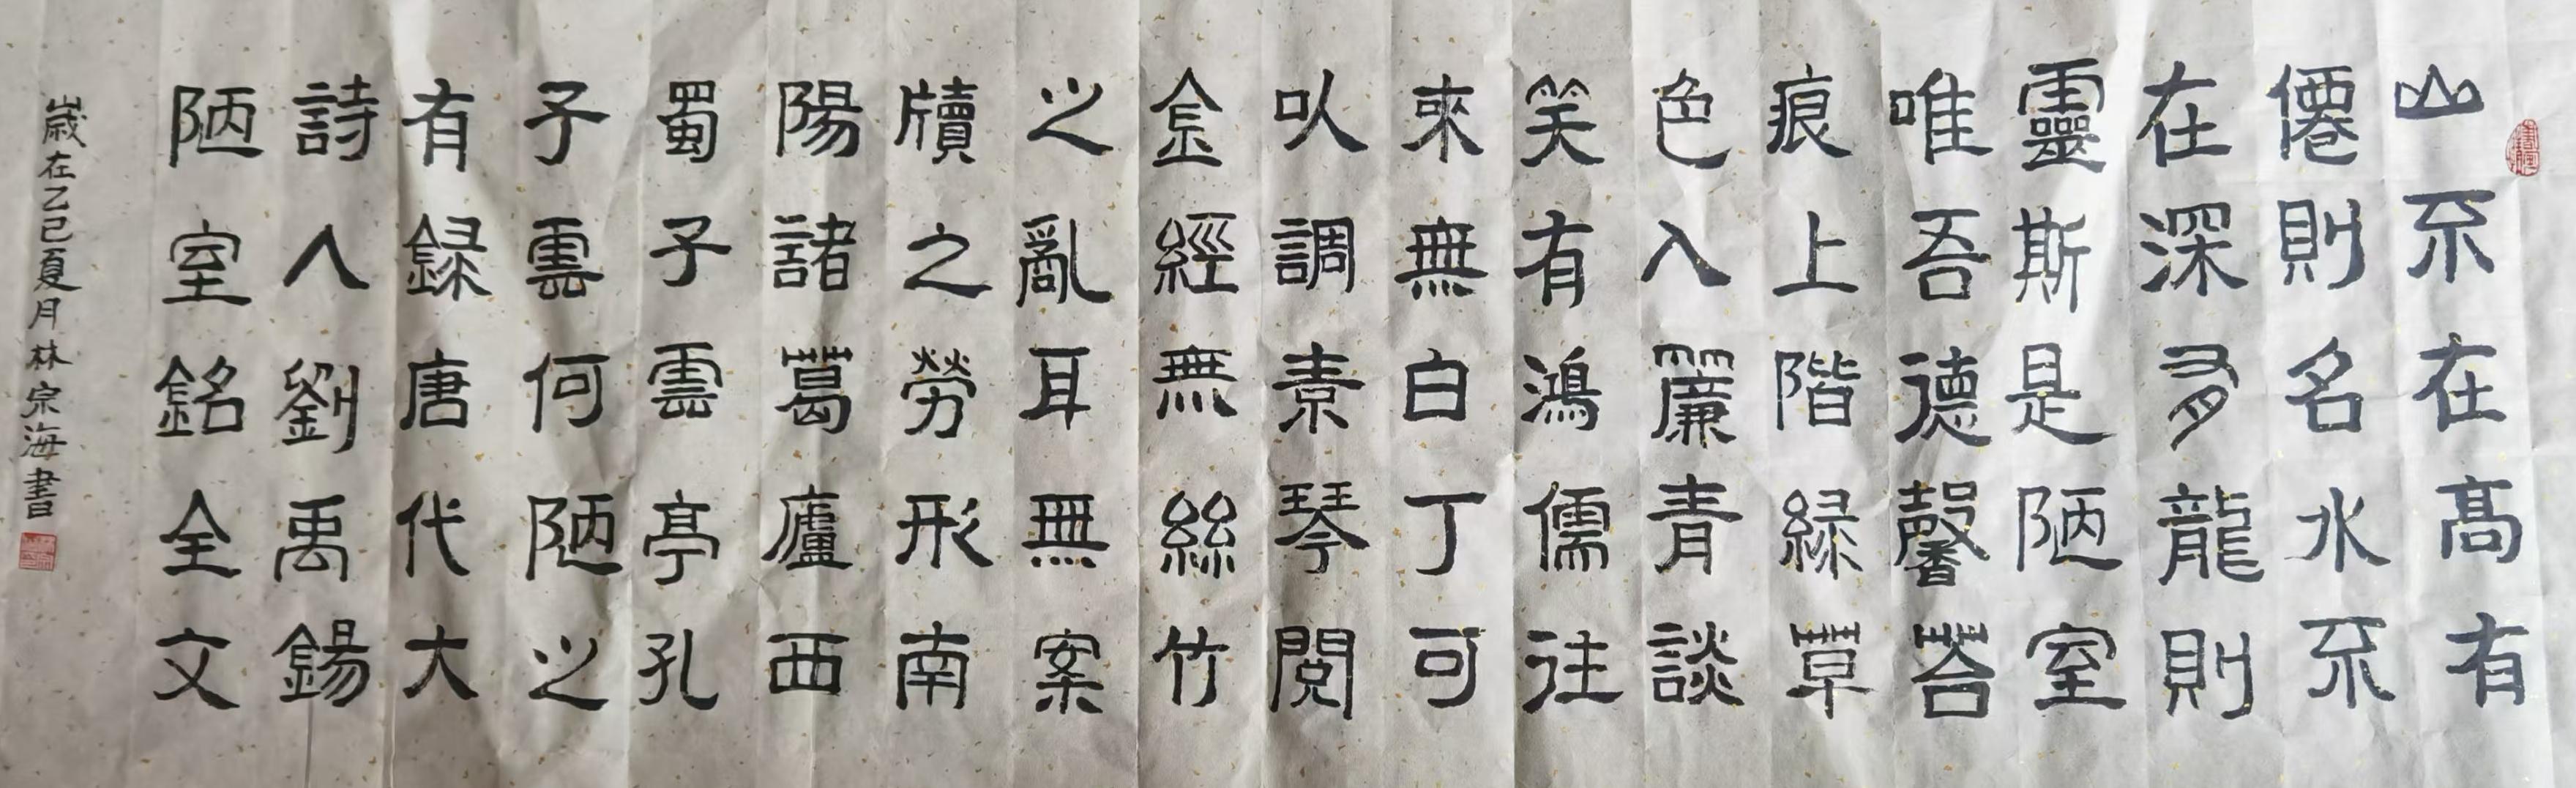 山不在高有
僊則名水不
在深有龍則
靈斯是陋室
唯吾德馨苔
痕上階緑草
色入簾青談
笑有鴻儒往
來無白丁可
以調素琴閲
金經無絲竹
之亂耳無案
牘之勞形南
陽諸葛廬西
蜀子雲亭孔
子雲何陋之
有録唐代大
詩人劉禹錫
陋室銘全文
歲在乙巳夏月林宗海書